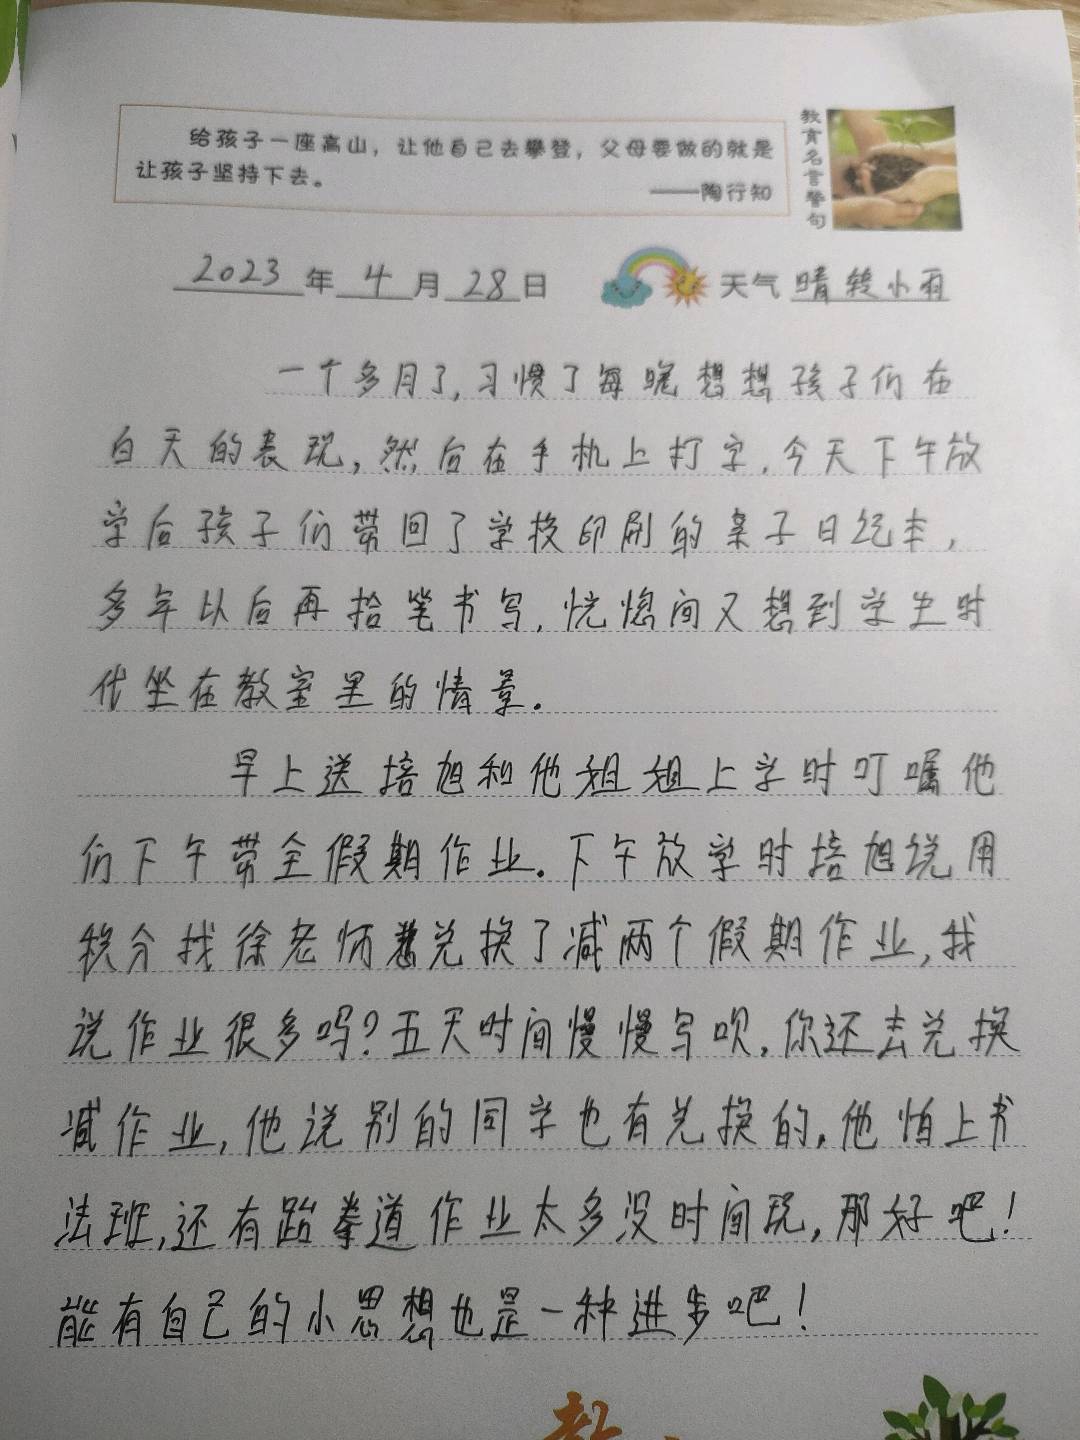 给孩子一座高山，让他自己去攀登，父母要做的就是
让孩子坚持下去。
——陶行知
教育名言警句
2023年4月28日 天气 晴转小雨
一个多月了,习惯了每晚想想孩子们在
白天的表现,然后在手机上打字.今天下午放
学后孩子们带回了学校印刷的亲子日记本,
多年以后再拾笔书写,恍惚间又想到学生时
代坐在教室里的情景.
早上送培旭和他姐姐上学时叮嘱他
们下午带全假期作业.下午放学时培旭说用
积分找徐老师兑换了减两个假期作业,我
说作业很多吗?五天时间慢慢写呗,你还去兑换
减作业,他说别的同学也有兑换的,他怕上书
法班,还有跆拳道作业太多没时间玩,那好吧!
能有自己的小思想也是一种进步吧!